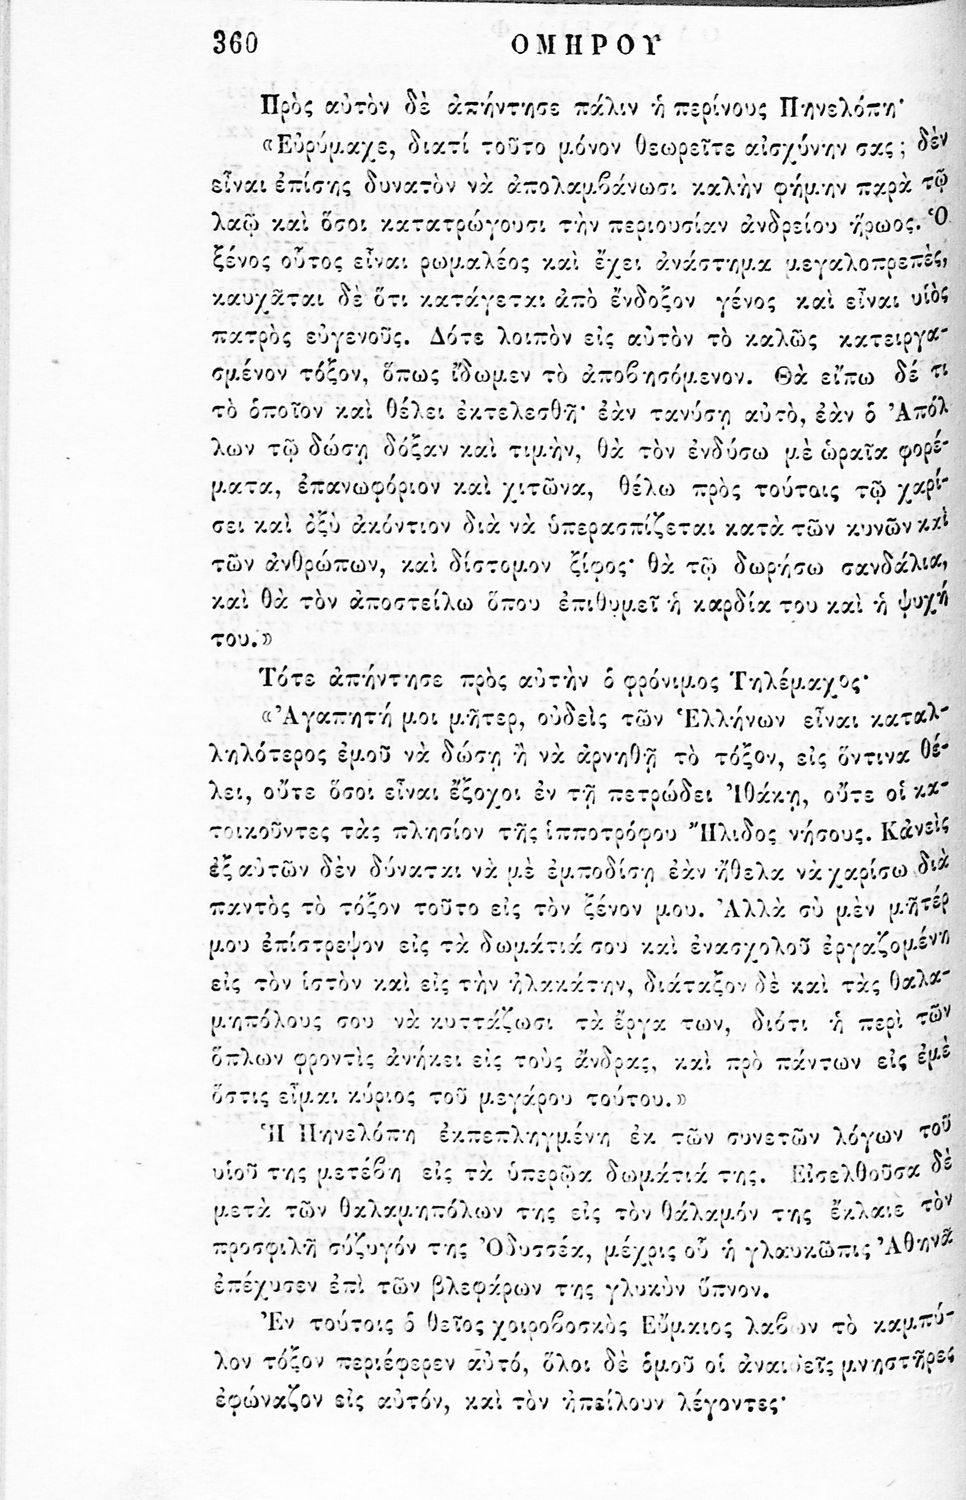 360 ΟΜΗΡΟΥ
Πρὸς αὐτὸν δὲ ἀπήντησε πάλιν ἡ περίνους Πηνελόπη·
«Εὐρύμαχε, διατί τοῦτο μόνον θεωρεῖτε αἰσχύνην σας; δὲν
εἶναι ἐπίσης δυνατὸν νὰ ἀπολαμβάνωσι καλὴν φήμην παρὰ τῷ
λαῷ καὶ ὅσοι κατατρώγουσι τὴν περιουσίαν ἀνδρείου ἥρωος. Ὁ
ξένος οὗτος εἶναι ρωμαλέος καὶ ἔχει ἀνάστημα μεγαλοπρεπὲς,
καυχᾶται δὲ ὅτι κατάγεται ἀπὸ ἔνδοξον γένος καὶ εἶναι υἱὸς
πατρὸς εὐγενοῦς. Δότε λοιπὸν εἰς αὐτὸν τὸ καλῶς κατειργα-
σμένον τόξον, ὅπως ἴδωμεν τὸ ἀποβησόμενον. Θὰ εἴπω δέ τι
τὸ ὁποῖον καὶ θέλει ἐκτελεσθῆ· ἐὰν τανύσῃ αὐτὸ, ἐὰν ὁ Ἀπόλ
λων τῷ δώσῃ δόξαν καὶ τιμὴν, θὰ τὸν ἐνδύσω μὲ ὡραῖα φορέ-
ματα, ἐπανωφόριον καὶ χιτῶνα, θέλω πρὸς τούτοις τῷ χαρί-
σει καὶ ὀξὺ ἀκόντιον διὰ νὰ ὑπερασπίζεται κατὰ τῶν κυνῶν καὶ
τῶν ἀνθρώπων, καὶ δίστομον ξίφος· θὰ τῷ δωρήσω σανδάλια,
καὶ θὰ τὸν ἀποστείλω ὅπου ἐπιθυμεῖ ἡ καρδία του καὶ ἡ ψυχή
του.»
Τότε ἀπήντησε πρὸς αὐτὴν ὁ φρόνιμος Τηλέμαχος·
«Ἀγαπητή μοι μῆτερ, οὐδεὶς τῶν Ἑλλήνων εἶναι καταλ-
ληλότερος ἐμοῦ νὰ δώσῃ ἢ νὰ ἀρνηθῇ τὸ τόξον, εἰς ὅντινα θέ-
λει, οὔτε ὅσοι εἶναι ἔξοχοι ἐν τῇ πετρώδει Ἰθάκῃ, οὔτε οἱ κα-
τοικοῦντες τὰς πλησίον τῆς ἱπποτρόφου Ἤλιδος νήσους. Κἀνεὶς
ἐξ αὐτῶν δὲν δύναται νὰ μὲ ἐμποδίσῃ ἐὰν ἤθελα νὰ χαρίσω διὰ
παντὸς τὸ τόξον τοῦτο εἰς τὸν ξένον μου. Ἀλλὰ σὺ μὲν μῆτέρ
μου ἐπίστρεψον εἰς τὰ δωμάτιά σου καὶ ἐνασχολοῦ ἐργαζομένη
εἰς τὸν ἱστὸν καὶ εἰς τὴν ἠλακάτην, διάταξον δὲ καὶ τὰς θαλα-
μηπόλους σου νὰ κυττάζωσι τὰ ἔργα των, διότι ἡ περὶ τῶν
ὅπλων φροντὶς ἀνήκει εἰς τοὺς ἄνδρας, καὶ πρὸ πάντων εἰς ἐμὲ
ὅστις εἶμαι κύριος τοῦ μεγάρου τούτου.»
Ἡ Πηνελόπη ἐκπεπληγμένη ἐκ τῶν συνετῶν λόγων τοῦ
υἱοῦ της μετέβη εἰς τὰ ὑπερῷα δωμάτιά της. Εἰσελθοῦσα δὲ
μετὰ τῶν θαλαμηπόλων της εἰς τὸν θάλαμόν της ἔκλαιε τὸν
προσφιλῆ σύζυγόν της Ὀδυσσέα, μέχρις οὗ ἡ γλαυκῶπις Ἀθηνᾶ
ἐπέχυσεν ἐπὶ τῶν βλεφάρων της γλυκὺν ὕπνον.
Ἐν τούτοις ὁ θεῖος χοιροβοσκὸς Εὔμαιος λαβὼν τὸ καμπύ-
λον τόξον περιέφερεν αὐτό, ὅλοι δὲ ὁμοῦ οἱ ἀναιδεῖς μνηστῆρες
ἐφώναζον εἰς αὐτόν, καὶ τὸν ἠπείλουν λέγοντες·